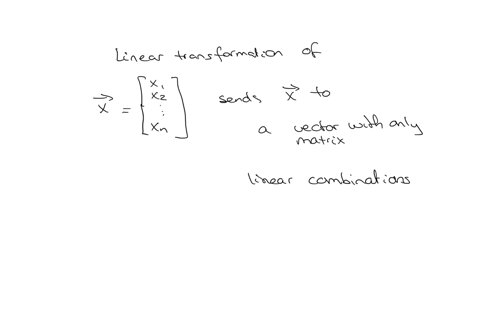 Linear transformation of
x⃗ = [x₁ x₂ ⋮ xₙ] sends x⃗ to
a vector with only
matrix
linear combinations